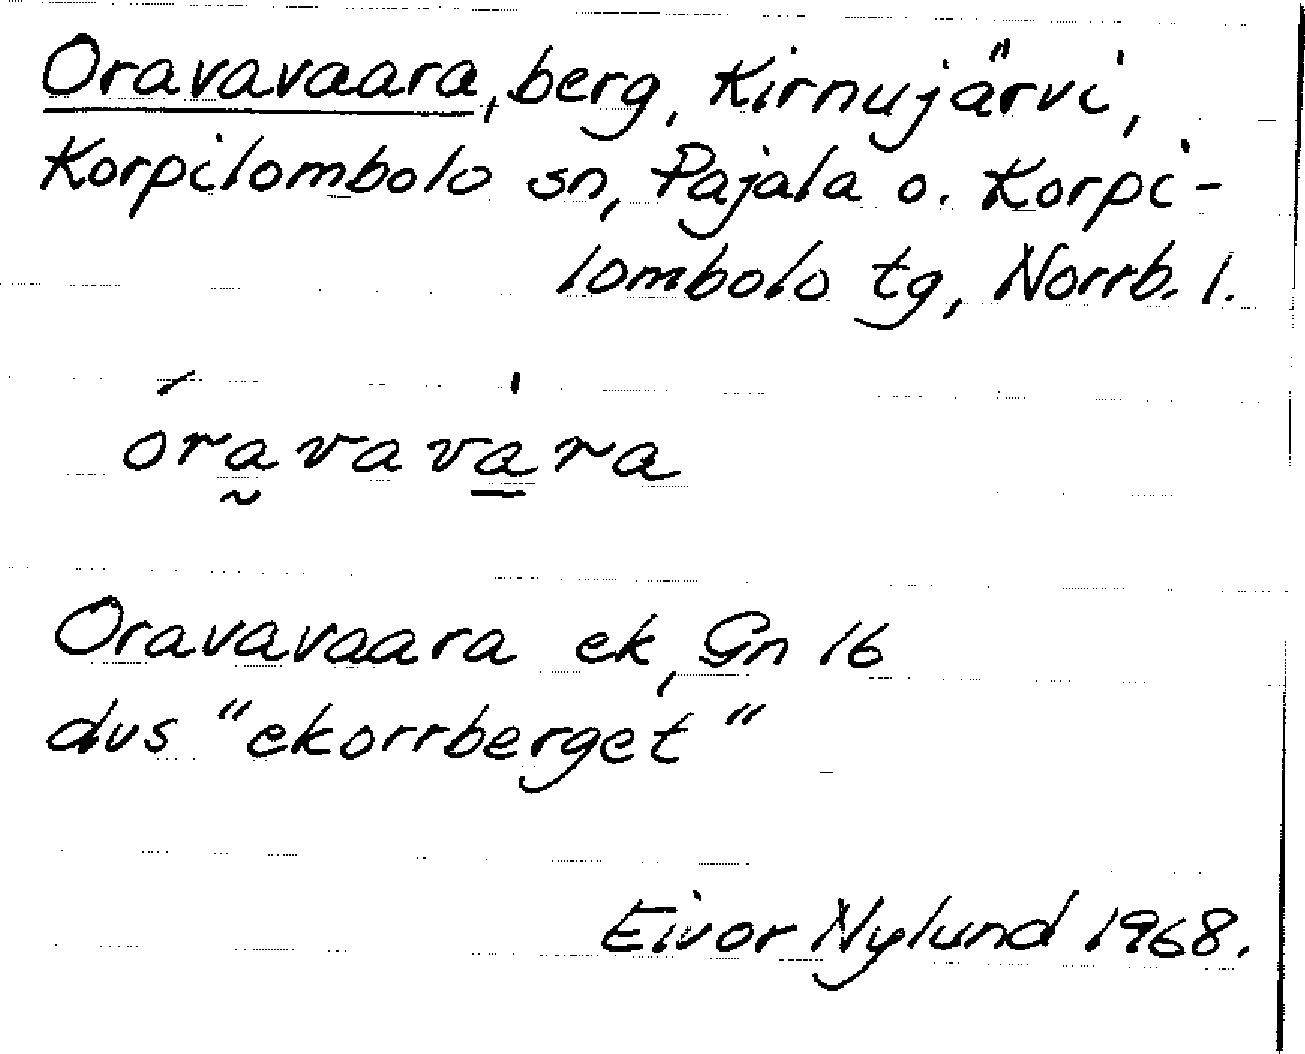 Oravavaara, berg, Kirnujärvi,
Korpilombolo sn, Pajala o. Korpi-
lombolo tg, Norrb. l.
óra̰vava̱̍ra
Oravavaara ek, Gn 16
dvs "ekorrberget"
Eivor Nylund 1968.